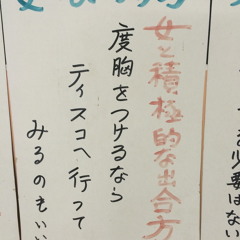 女と積極的な出合方
度胸をつけるなら
ティスコへ行って
みるのもいい